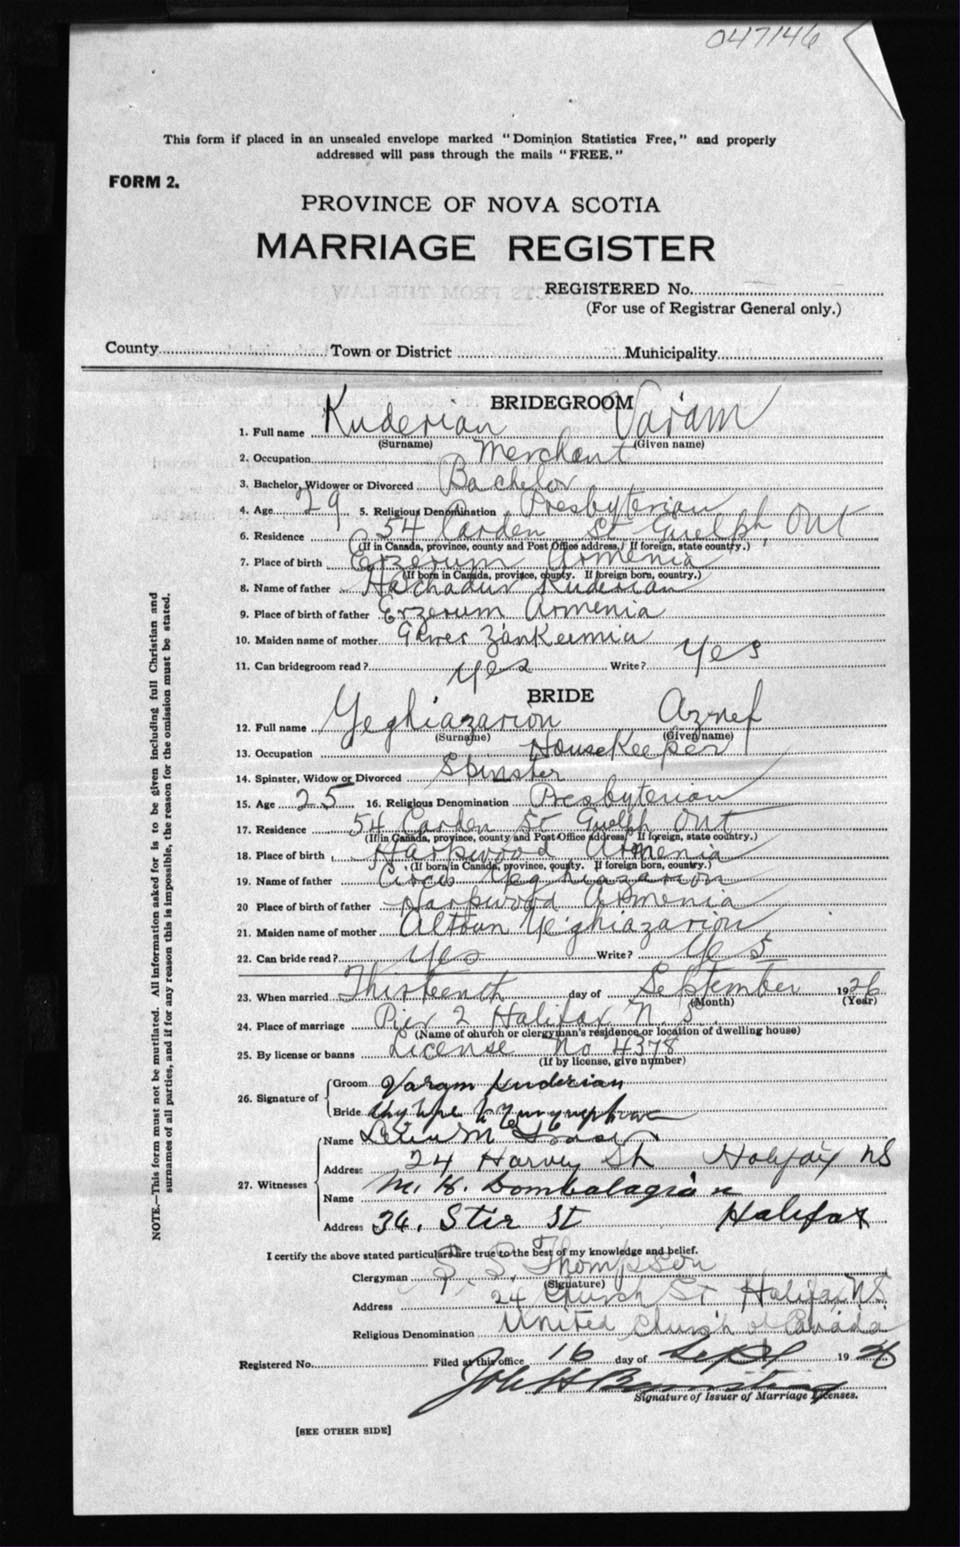 047146
This form if placed in an unsealed envelope marked "Dominion Statistics Free," and properly
addressed will pass through the mails "FREE."
FORM 2.
PROVINCE OF NOVA SCOTIA
MARRIAGE REGISTER
REGISTERED No.
(For use of Registrar General only.)
County Town or District Municipality
BRIDEGROOM
1. Full name Kuderian Varam
(Surname) (Given name)
2. Occupation Merchant
3. Bachelor, Widower or Divorced Bachelor
4. Age 29 5. Religious Denomination Presbyterian
6. Residence 54 Carden St Guelph, Ont
(If in Canada, province, county and Post Office address. If foreign, state country.)
7. Place of birth Erzerum Armenia
(If born in Canada, province, county. If foreign born, country.)
8. Name of father Hatchadur Kuderian
9. Place of birth of father Erzerum Armenia
10. Maiden name of mother
11. Can bridegroom read? yes Write? yes
BRIDE
12. Full name Yeghiazarion Aznef
(Surname) (Given name)
13. Occupation HouseKeeper
14. Spinster, Widow or Divorced Spinster
15. Age 25 16. Religious Denomination Presbyterian
17. Residence 54 Carden St Guelph Ont
(If in Canada, province, county and Post Office address. If foreign, state country.)
18. Place of birth Harpwood Armenia
(If born in Canada, province, county. If foreign born, country.)
19. Name of father Yeghiazarion
20 Place of birth of father Harpwood Armenia
21. Maiden name of mother Altoun Yeghiazarion
22. Can bride read? yes Write? yes
23. When married Thirteenth day of September 1926
(Month) (Year)
24. Place of marriage Pier 2 Halifax N. S.
(Name of church or clergyman's residence or location of dwelling house)
25. By license or banns License No 4378
(If by license, give number)
26. Signature of
Groom Varam Kuderian
Bride
27. Witnesses
Name M
Address 24 Harvey St Halifax NS
Name M. H. Dombalagian
Address 36, Stir St Halifax
I certify the above stated particulars are true to the best of my knowledge and belief.
Clergyman Thompson
(Signature)
Address 24 Church St Halifax NS
Religious Denomination United Church of Canada
Registered No. Filed at this office 16 day of Sept 1926
Signature of Issuer of Marriage Licenses.
[SEE OTHER SIDE]
NOTE.—This form must not be mutilated. All information asked for is to be given including full Christian and
surnames of all parties, and if for any reason this is impossible, the reason for the omission must be stated.